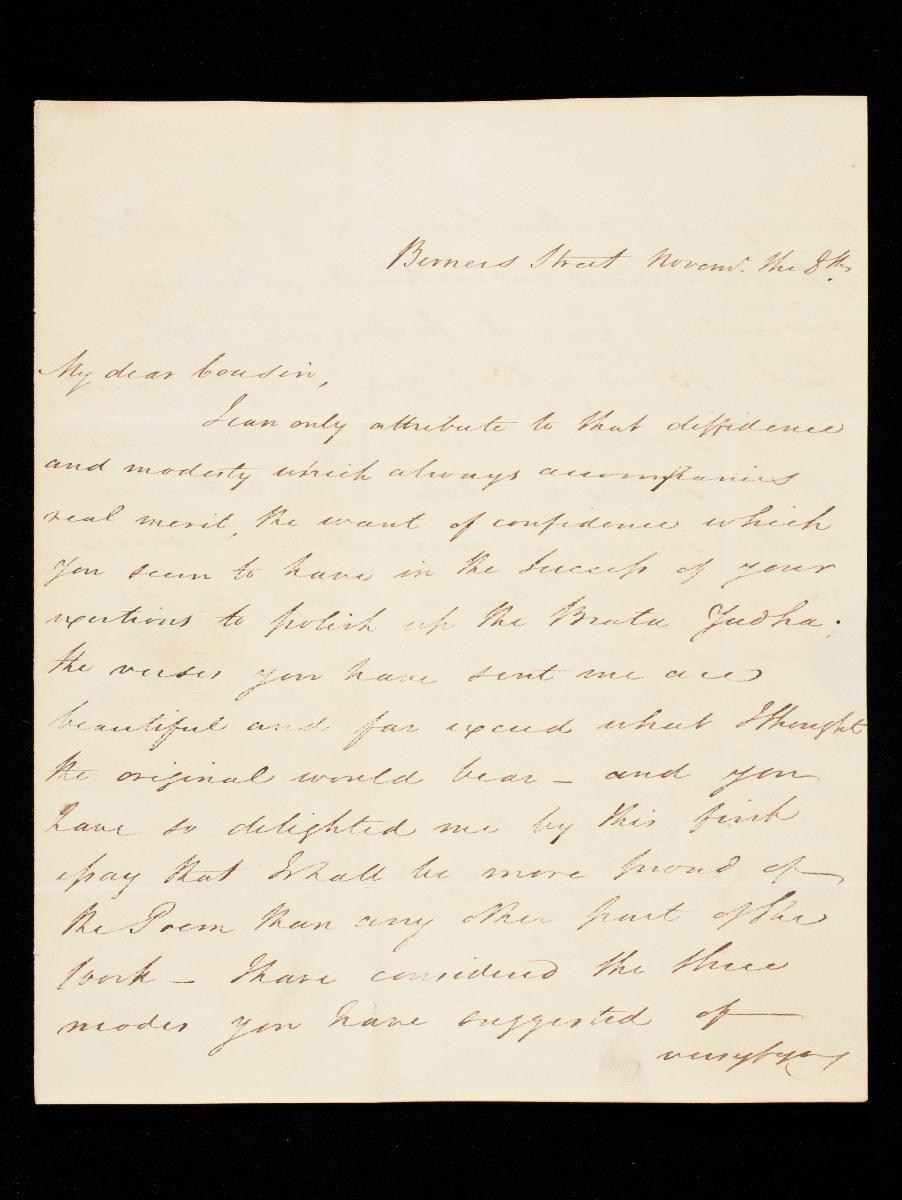 Berners Street Novemr. the 8th
My dear Cousin,
I can only attribute to that diffidence
and modesty which always accompanies
real merit, the want of confidence which
you seem to have in the success of your
exertions to polish up the Brata Yudha;
the verses you have sent me are
beautiful and far exceed what I thought
the original would bear – and you
have so delighted me by this first
essay that I shall be more proud of
the Poem than any other part of the
Work – I have considered the three
modes you have suggested of
versifying